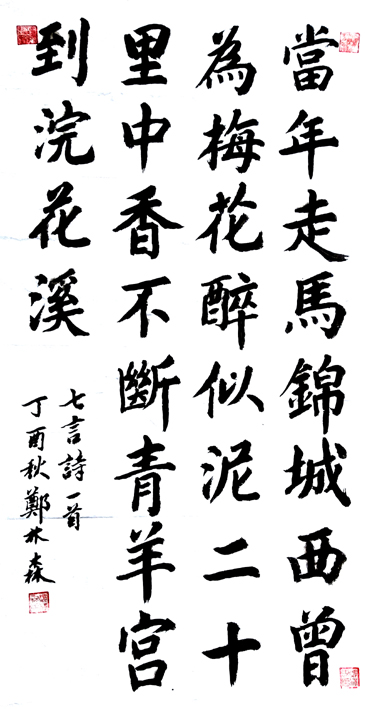 當年走馬錦城西曾
為梅花醉似泥二十
里中香不斷青羊宮
到浣花溪
七言詩一首
丁酉秋鄭林森